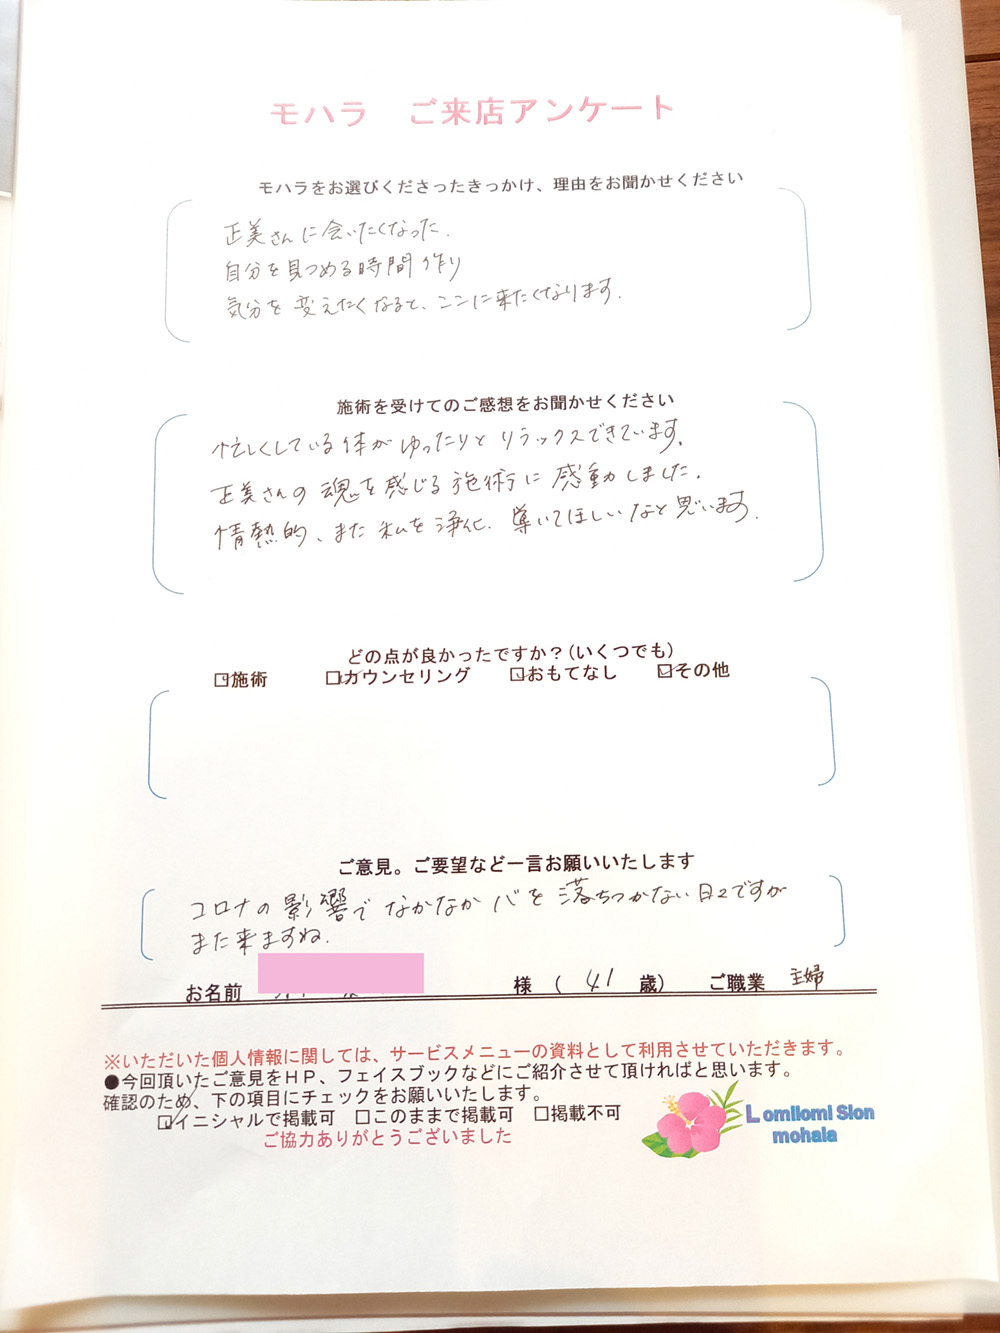 モハラ ご来店アンケート
モハラをお選びくださったきっかけ、理由をお聞かせください
正美さんに会いたくなった.
自分を見つめる時間作り
気分を変えたくなると、ここに来たくなります.
施術を受けてのご感想をお聞かせください
忙しくしている体がゆったりとリラックスできています.
正美さんの魂を感じる施術に感動しました.
情熱的、また私を浄化.導いてほしいなと思います.
どの点が良かったですか？(いくつでも)
☑施術 ☑カウンセリング ☑おもてなし ☑その他
ご意見。ご要望など一言お願いいたします
コロナの影響でなかなか心を落ちつかない日々ですが
また来ますね.
お名前 様 ( 41 歳) ご職業 主婦
※いただいた個人情報に関しては、サービスメニューの資料として利用させていただきます。
●今回頂いたご意見をＨＰ、フェイスブックなどにご紹介させて頂ければと思います。
確認のため、下の項目にチェックをお願いいたします。
☑イニシャルで掲載可 □このままで掲載可 □掲載不可
ご協力ありがとうございました
Lomilomi Slon
mohala